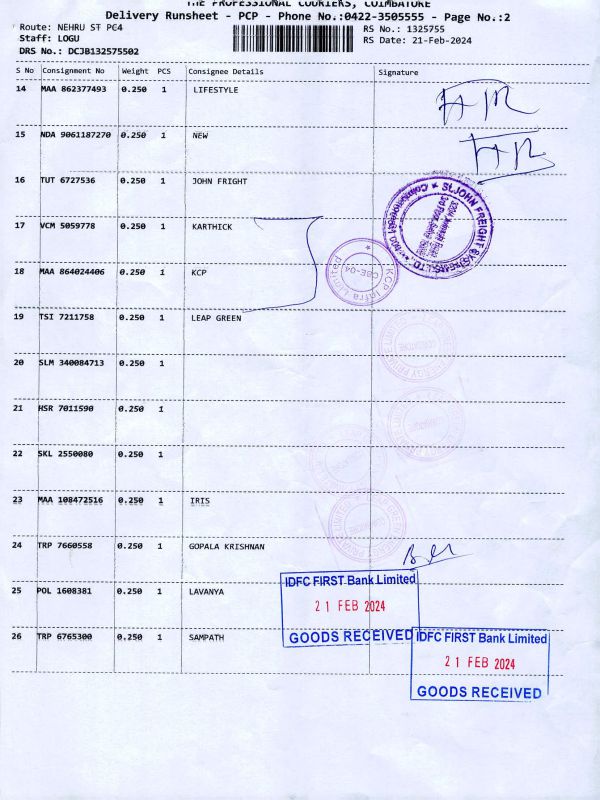 THE PROFESSIONAL COURIERS, COIMBATORE
Delivery Runsheet - PCP - Phone No.:0422-3505555 - Page No.:2
Route: NEHRU ST PC4
RS No.: 1325755
Staff: LOGU
RS Date: 21-Feb-2024
DRS No.: DCJB132575502
S No Consignment No Weight PCS Consignee Details Signature
14 MAA 862377493 0.250 1 LIFESTYLE
15 NDA 9061187270 0.250 1 NEW
16 TUT 6727536 0.250 1 JOHN FRIGHT
17 VCM 5059778 0.250 1 KARTHICK
18 MAA 864024406 0.250 1 KCP
KCP Infra Limited
CBE-04
19 TSI 7211758 0.250 1 LEAP GREEN
20 SLM 340084713 0.250 1
21 HSR 7011590 0.250 1
22 SKL 2550080 0.250 1
23 MAA 108472516 0.250 1 IRIS
24 TRP 7660558 0.250 1 GOPALA KRISHNAN
25 POL 1608381 0.250 1 LAVANYA
IDFC FIRST Bank Limited
21 FEB 2024
GOODS RECEIVED
26 TRP 6765300 0.250 1 SAMPATH
IDFC FIRST Bank Limited
21 FEB 2024
GOODS RECEIVED